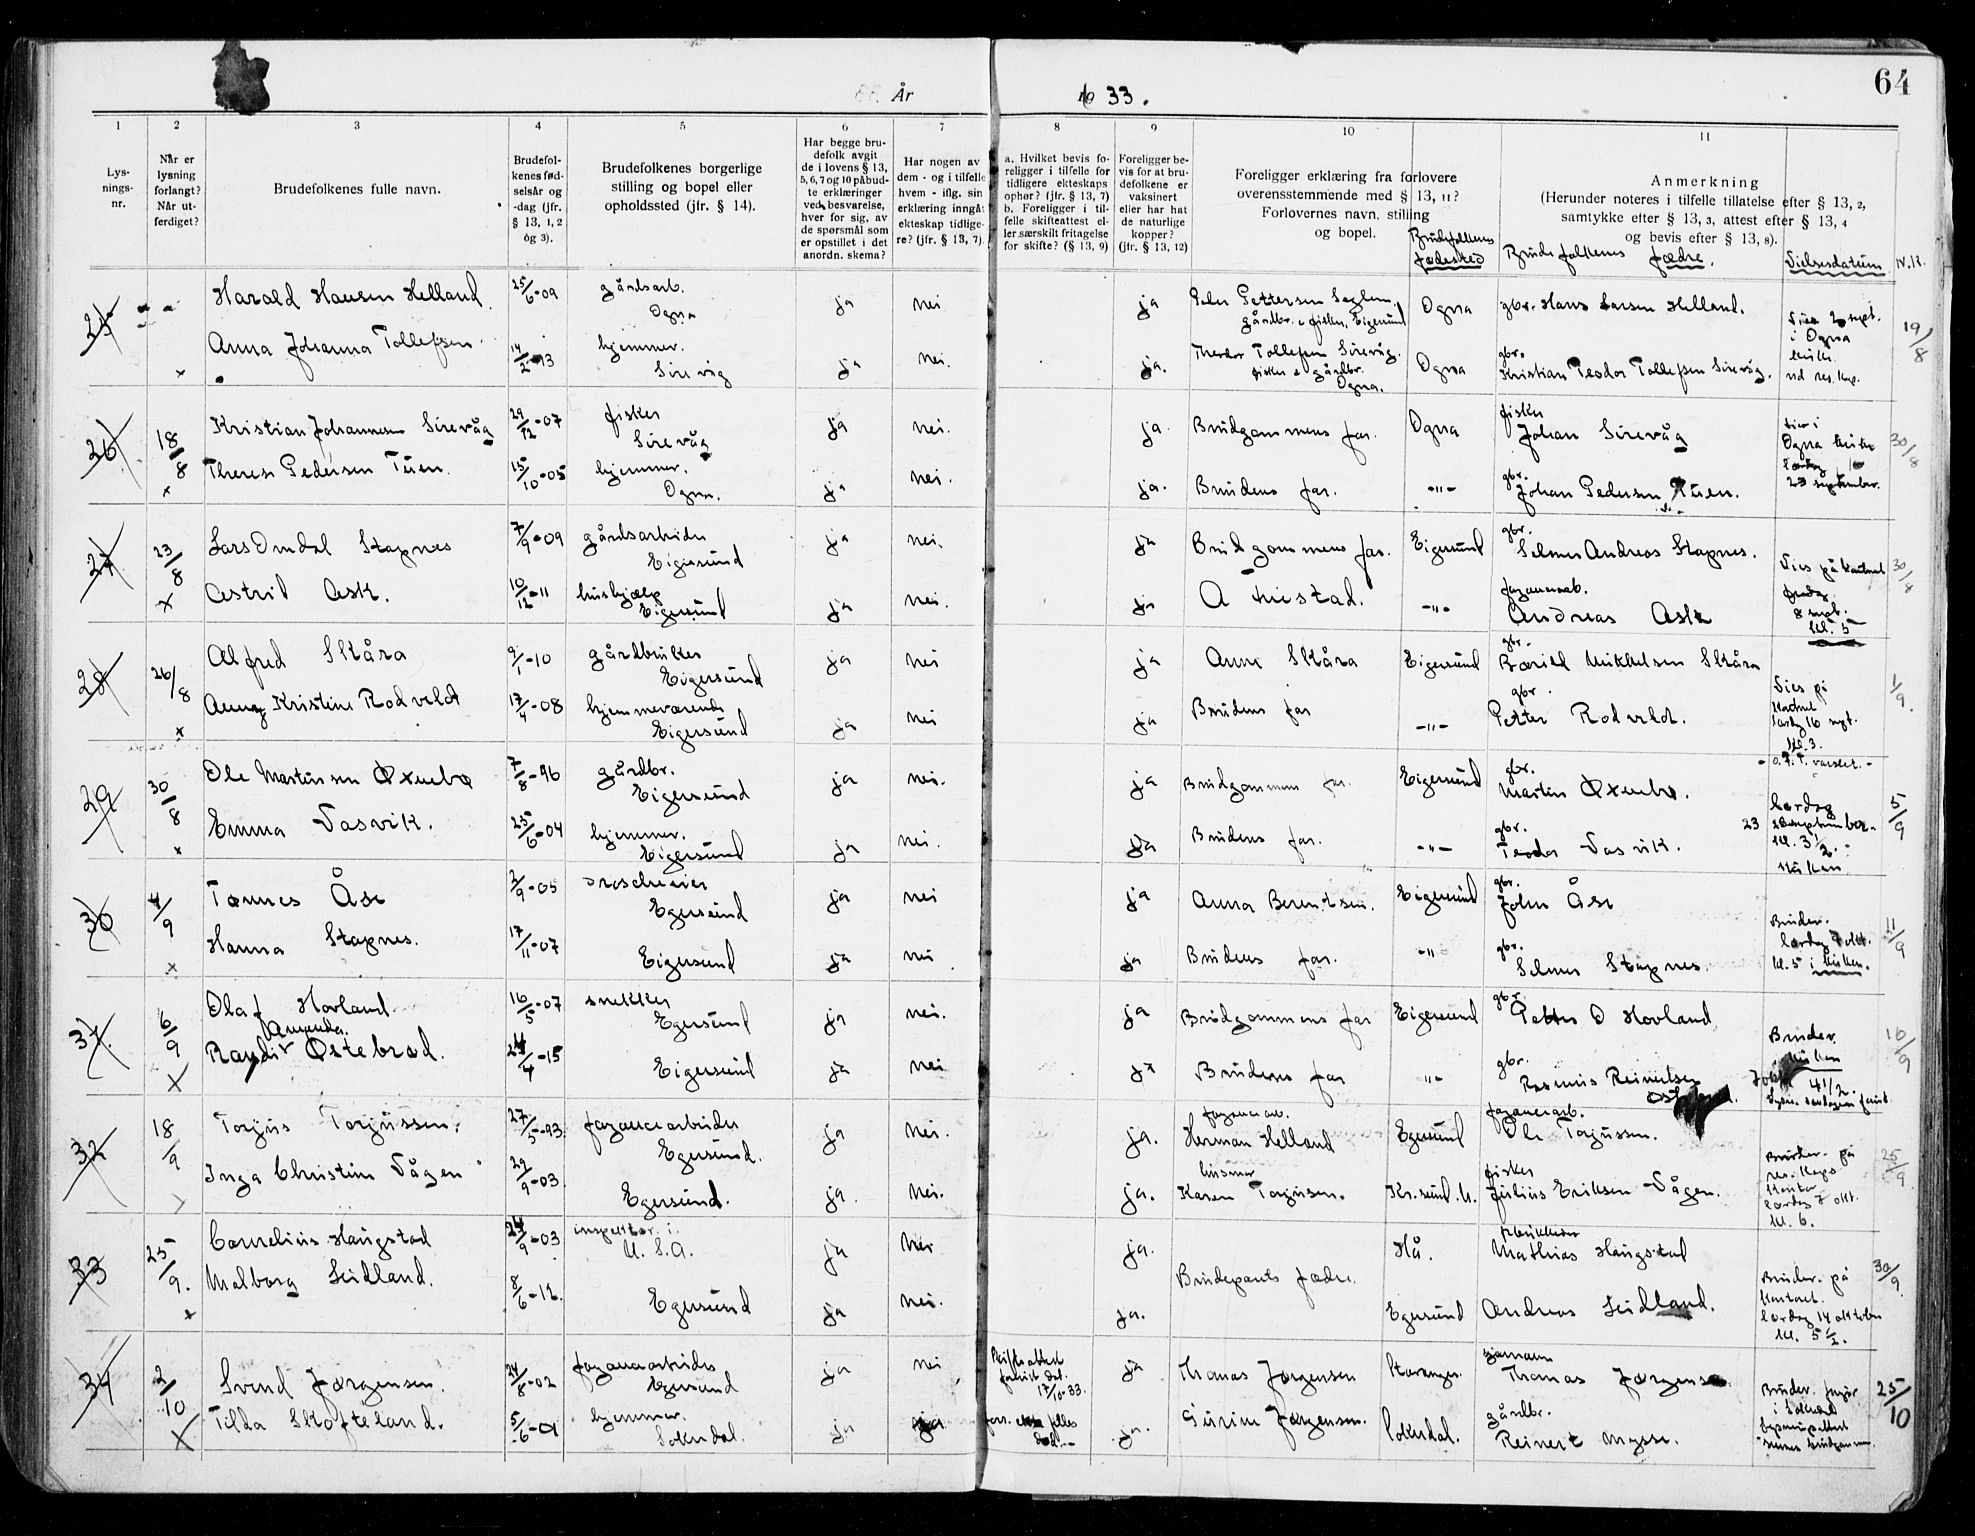 64
År
1933.
1
2
3
4
5
6
7
8
9
10
11
Lys-
nings-
nr.
Når er
lysning
forlangt?
Når ut-
ferdiget?
Brudefolkenes fulle navn.
Brudefol-
kenes fød-
selsår og
-dag (jfr.
§ 13, 1, 2
og 3).
Brudefolkenes borgerlige
stilling og bopel eller
opholdssted (jfr. § 14).
Har begge bru-
defolk avgit
de i lovens § 13,
5, 6, 7 og 10 påbud-
te erklæringer
ved besvarelse,
hver for sig, av
de spørsmål som
er opstillet i det
anordn. skema?
Har nogen av
dem - og i tilfelle
hvem - iflg. sin
erklæring inngåt
ekteskap tidlige-
re? (jfr. § 13, 7).
a. Hvilket bevis fo-
religger i tilfelle for
tidligere ekteskaps
ophør? (jfr. § 13, 7)
b. Foreligger i til-
felle skifteattest el-
ler særskilt fritagelse
for skifte? (§ 13, 9)
Foreligger be-
vis for at bru-
defolkene er
vaksinert
eller har hat
de naturlige
kopper?
(jfr. § 13, 12)
Foreligger erklæring fra forlovere
overensstemmende med § 13, 11?
Forlovernes navn, stilling
og bopel.
Brudefolkenes
fødested
Anmerkning
(Herunder noteres i tilfelle tillatelse efter § 13, 2,
samtykke efter § 13, 3, attest efter § 13, 4
og bevis efter § 13, 8).
Brudefolkenes fædre.
Vielsesdatum
25 Harald Hansen Helland 25/6-09 gårdsarb. Ogna ja nei ja Peder Pettersen
gårdbr. & fisker, Eigersund Ogna gbr. Hans Larsen Helland. 19/8
Anna Johanna Tollefsen 14/2-13 hjemmev. Sirevåg ja nei. ja. Theodor Tollefsen Sirevåg.
fisker & gårdbr. Ogna. Ogna gbr. Kristian Teodor Tollefsen Sirevåg.
Vies 2 sept.
i Ogna
kirke
26 18/8 Kristian Johannesen Sirevåg 29/12-07 fisker Sirevåg ja nei. ja Brudgommens far. Ogna fisker Johan Sirevåg 30/8
Therese Pedersen Tuen. 15/10-05 hjemmev. Ogna. ja nei. ja. Brudens far. -"- gbr. Johan Pedersen Tuen.
Vies i
Ogna kirke
23 september.
27 23/8 Lars Omdal Stapnes 7/9-09 gårdsarbeider Eigersund ja nei. ja Brudgommens far. Eigersund gbr. Selmer Andreas Stapnes. 30/8
Astrid Ask. 10/12-11 hushjælp Eigersund ja nei. ja -"- Andreas Ask
Vies på kontoret
fredag
8 sept.
kl. 5
28 26/8 Alfred Skåra 9/1-10 gårdbruker Eigersund ja nei ja Anna Skåra Eigersund gbr. Mikkelsen Skåra 1/9.
Anny Kristine Rodveldt 17/4-08 hjemmeværende Eigersund ja nei ja Brudens far -"- gbr. Petter Rodveldt.
Vies på
kontoret
lørdag 16 sept.
kl. 3.
29 30/8 Ole Martinsen Øxnebø 7/8-96 gårdbr. Eigersund ja nei. ja Brudgommens far. Eigersund gbr. Martin Øxnebø. 5/9
Emma Vasvik. 25/6-04 hjemmev. Eigersund ja nei. ja Brudens far. -"- gbr. Teodor Vasvik. 23
Lørdag
september.
kl. 3½
kirken
30 4/9 Tønnes Åse 2/9-05 droscheeier Egersund ja nei ja Anna Berentsen. Eigersund gbr. John Åse 11/9
Hanna Stapnes. 17/11-07 Eigersund ja nei ja Brudens far. -"- gbr. Selmer Stapnes.
lørdag 7 okt.
kl. 5 i kirken.
31. 6/9 Olaf Hovland 16/5-07 snekker Egersund ja nei. ja Brudgommens far Eigersund gbr. Petter O Hovland 16/9
Amanda.
Randi Østebrød. 24/4-15 Eigersund ja nei ja Brudens far -"- gbr. Rasmus Reinertsen
4½.
32 18/9 Torjus Torjussen. 27/5-93. fayancearbeider Egersund. ja nei. ja. fayancearb.
Herman Helland Egersund fayancearb. Ole Torjussen. 25/9.
Inga Christine Vågen 29/9-03. Egersund. ja. nei. ja. Karen Torjussen. Kr.sund N. fisker Julius Eriksen Vågen.
lørdag 7 okt.
kl. 6.
33 25/9. Cornelius Haugstad 24/9-03 inspektør i U.S.A. ja nei ja. Brudeparets fædre. Hå. Mathias Haugstad 30/9.
Malborg Seidland. 8/6-12. Egersund ja nei. ja. Egersund Andreas Seidland.
kontoret.
lørdag 14 oktober
kl. 5½.
34 2/10 Svend Jørgensen. 24/8-02 fayancearbeider Egersund ja nei Skifteattest
17/10-33. ja Thomas Jørgensen Stavanger. sjømann Thomas Jørgensen 25/10
Tilda Skofteland. 5/6-01 hjemmev. Sokndal. ja ja ja. Gurine Jørgensen. Sokndal. gårdbr. Reinert Mysse.
i Sokndal